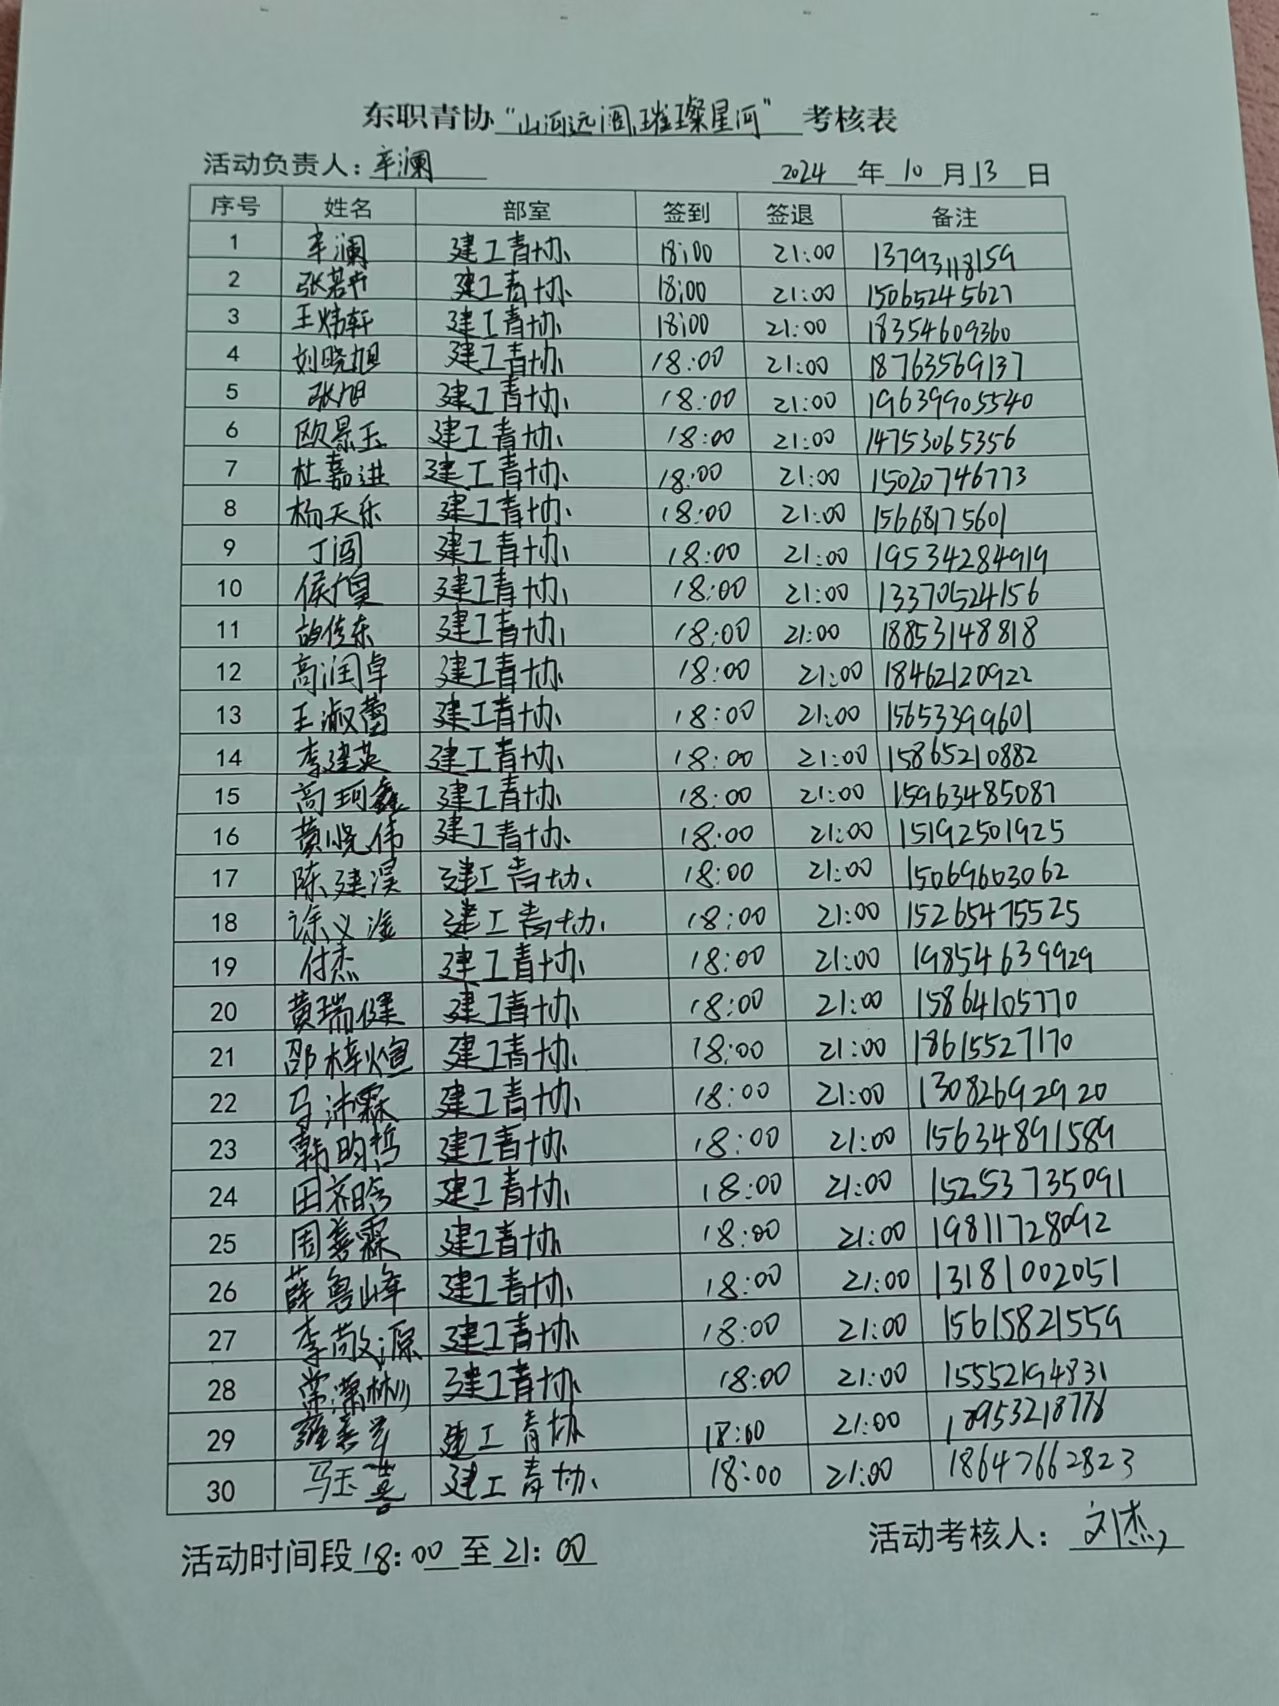 东职青协“山河远阔,璀璨星河”考核表
活动负责人：辛澜 2024年10月13日
序号 姓名 部室 签到 签退 备注
1 辛澜 建工青协 18:00 21:00 13793118159
2 张若卉 建工青协 18:00 21:00 15065245627
3 王炜轩 建工青协 18:00 21:00 18354609360
4 刘晓旭 建工青协 18:00 21:00 18763569137
5 张旭 建工青协 18:00 21:00 19639905540
6 欧景玉 建工青协 18:00 21:00 14753065356
7 杜嘉进 建工青协 18:00 21:00 15020746773
8 杨天乐 建工青协 18:00 21:00 15668175601
9 丁闯 建工青协 18:00 21:00 19534284919
10 建工青协 18:00 21:00 13370524156
11 胡佳东 建工青协 18:00 21:00 18853148818
12 高润卓 建工青协 18:00 21:00 18462120922
13 王淑蕾 建工青协 18:00 21:00 15653399601
14 李建英 建工青协 18:00 21:00 15865210882
15 高珂鑫 建工青协 18:00 21:00 15963485087
16 黄晓伟 建工青协 18:00 21:00 15192501925
17 陈建淏 建工青协 18:00 21:00 15069603062
18 徐义淦 建工青协 18:00 21:00 15265475525
19 付杰 建工青协 18:00 21:00 19854639929
20 黄瑞健 建工青协 18:00 21:00 15864105770
21 邵梓煊 建工青协 18:00 21:00 18615527170
22 马沛霖 建工青协 18:00 21:00 13082692920
23 韩昀哲 建工青协 18:00 21:00 15634891589
24 建工青协 18:00 21:00 15253735091
25 周善霖 建工青协 18:00 21:00 19811728092
26 薛鲁峰 建工青协 18:00 21:00 13181002051
27 李敬源 建工青协 18:00 21:00 15615821559
28 建工青协 18:00 21:00 15552194831
29 建工青协 18:00 21:00 18953218778
30 马玉喜 建工青协 18:00 21:00 18647662823
活动时间段18:00至21:00 活动考核人：刘杰